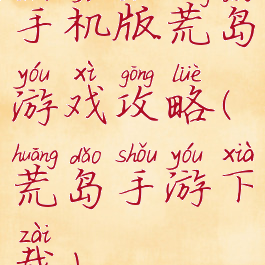 手机版荒岛
yóu xì gōng lüè
游戏攻略(
huāng dǎo shǒu yóu xià
荒岛手游下
zài
载)